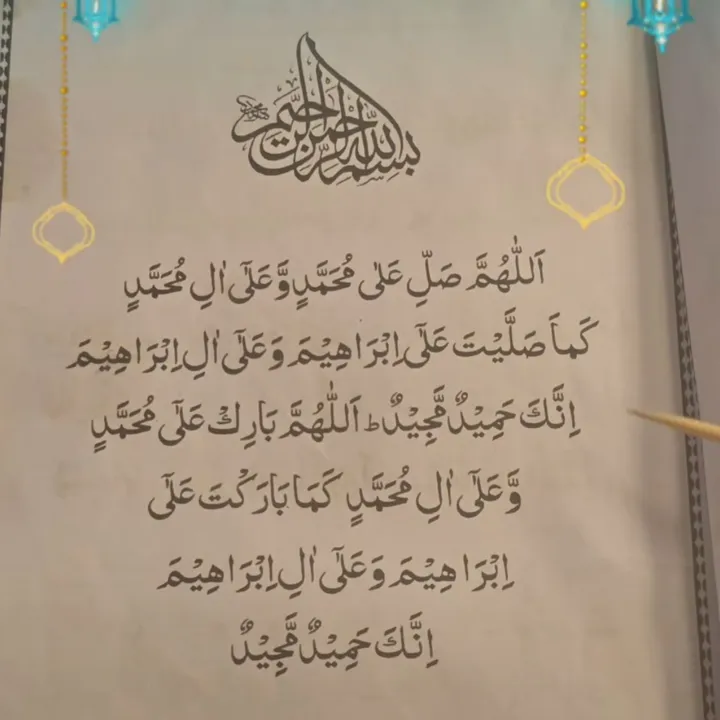 بِسْمِ اللّٰهِ الرَّحْمٰنِ الرَّحِيْمِ
اَللّٰهُمَّ صَلِّ عَلٰى مُحَمَّدٍ وَّعَلٰٓى اٰلِ مُحَمَّدٍ
كَمَا صَلَّيْتَ عَلٰٓى اِبْرَاهِيْمَ وَعَلٰٓى اٰلِ اِبْرَاهِيْمَ
اِنَّكَ حَمِيْدٌ مَّجِيْدٌ ؕ اَللّٰهُمَّ بَارِكْ عَلٰٓى مُحَمَّدٍ
وَّعَلٰٓى اٰلِ مُحَمَّدٍ كَمَا بَارَكْتَ عَلٰٓى
اِبْرَاهِيْمَ وَعَلٰٓى اٰلِ اِبْرَاهِيْمَ
اِنَّكَ حَمِيْدٌ مَّجِيْدٌ